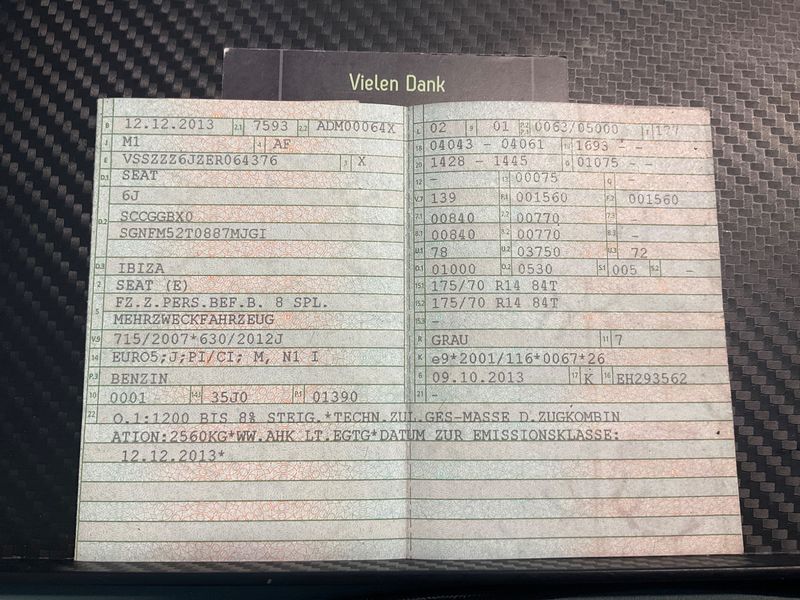 Vielen Dank
B 12.12.2013 2.1 7593 2.2 ADM00064X
J M1 4 AF
E VSSZZZ6JZER064376 3 X
D.1 SEAT
6J
D.2 SCCGGBX0
SGNFM52T0887MJGI
D.3 IBIZA
2 SEAT (E)
5 FZ.Z.PERS.BEF.B. 8 SPL.
MEHRZWECKFAHRZEUG
V.9 715/2007*630/2012J
14 EURO5;J;PI/CI; M, N1 I
P.3 BENZIN
10 0001 14.1 35J0 P.1 01390
22 O.1:1200 BIS 8% STEIG.*TECHN.ZUL.GES-MASSE D.ZUGKOMBIN
ATION:2560KG*WW.AHK LT.EGTG*DATUM ZUR EMISSIONSKLASSE:
12.12.2013*
L 02 9 01 P.2 P.4 0063/05000 T 177
18 04043 - 04061 19 1693 - -
20 1428 - 1445 G 01075 - -
12 - 13 00075 Q -
V.7 139 F.1 001560 F.2 001560
7.1 00840 7.2 00770 7.3 -
8.1 00840 8.2 00770 8.3 -
U.1 78 U.2 03750 U.3 72
O.1 01000 O.2 0530 S.1 005 S.2 -
15.1 175/70 R14 84T
15.2 175/70 R14 84T
15.3 -
R GRAU 11 7
K e9*2001/116*0067*26
6 09.10.2013 17 K 16 EH293562
21 -